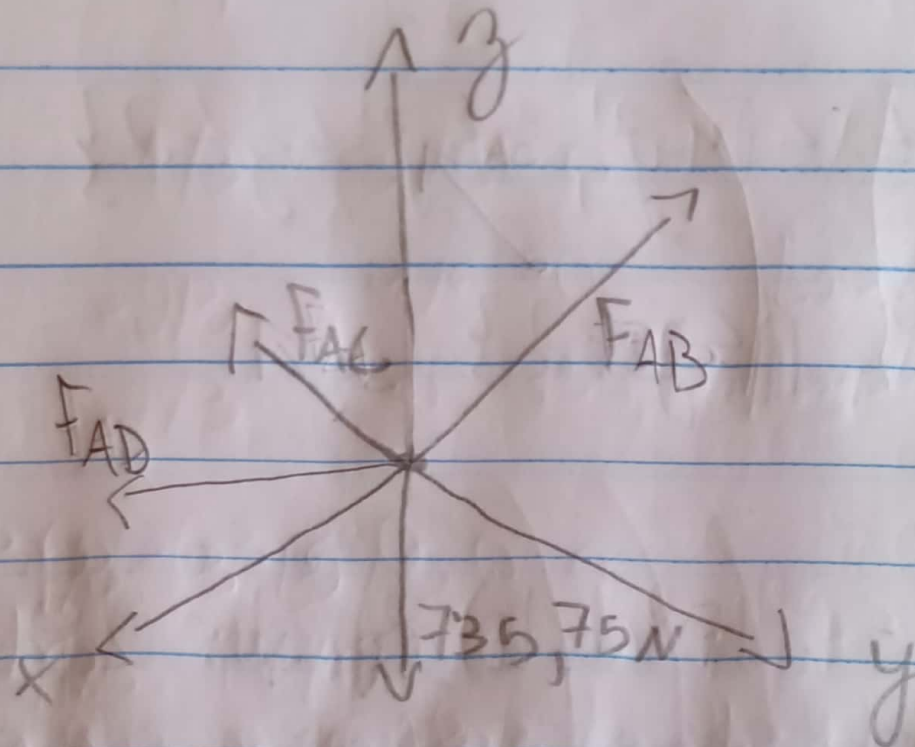 z
F_AC
F_AB
F_AD
735,75N
x
y